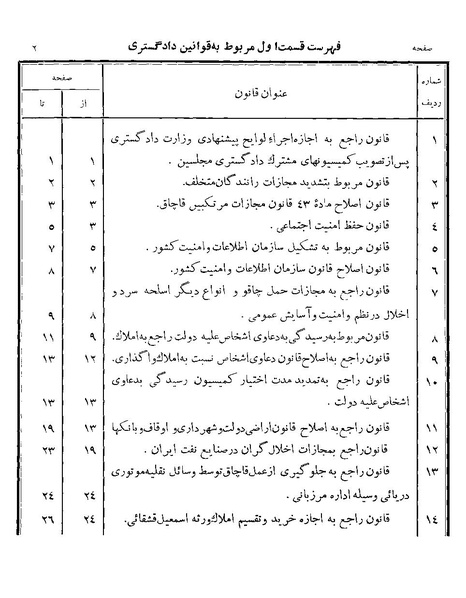 صفحه فهرست قسمت اول مربوط به قوانین دادگستری ۲
شماره ردیف عنوان قانون صفحه
از تا
۱ قانون راجع به اجازه اجراء لوایح پیشنهادی وزارت دادگستری
پس از تصویب کمیسیونهای مشترک دادگستری مجلسین . ۱ ۱
۲ قانون مربوط بتشدید مجازات رانندگان متخلف. ۲ ۲
۳ قانون اصلاح مادهٔ ۴۳ قانون مجازات مرتکبین قاچاق. ۳ ۳
٤ قانون حفظ امنیت اجتماعی . ۳ ۵
۵ قانون مربوط به تشکیل سازمان اطلاعات وامنیت کشور . ۵ ۷
۶ قانون اصلاح قانون سازمان اطلاعات وامنیت کشور. ۷ ۸
۷ قانون راجع به مجازات حمل چاقو و انواع دیگر اسلحه سرد و
اخلال درنظم وامنیت وآسایش عمومی . ۸ ۹
۸ قانون مربوط به رسیدگی به دعاوی اشخاص علیه دولت راجع به املاك. ۹ ۱۱
۹ قانون راجع به اصلاح قانون دعاوی اشخاص نسبت به املاك واگذاری. ۱۲ ۱۳
۱۰ قانون راجع به تمدید مدت اختیار کمیسیون رسیدگی بدعاوی
اشخاص علیه دولت . ۱۳ ۱۳
۱۱ قانون راجع به اصلاح قانون اراضی دولت و شهرداری و اوقاف و بانکها ۱۳ ۱۹
۱۲ قانون راجع بمجازات اخلال گران در صنایع نفت ایران . ۱۹ ۲۳
۱۳ قانون راجع به جلوگیری ازعمل قاچاق توسط وسائل نقلیه موتوری
دریائی وسیله اداره مرزبانی . ۲٤ ۲٤
۱٤ قانون راجع به اجازه خرید و تقسیم املاك ورثه اسمعیل قشقائی. ۲٤ ۲۶